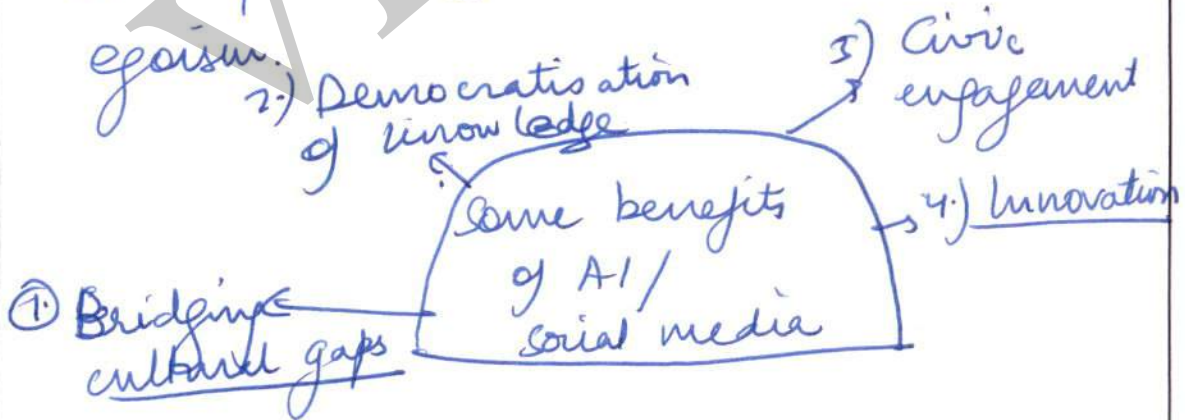 egoism.
2.) Democratisation
of knowledge
3) Civic
engagement
Some benefits
of AI/
social media
4.) Innovation
1. Bridging
cultural gaps